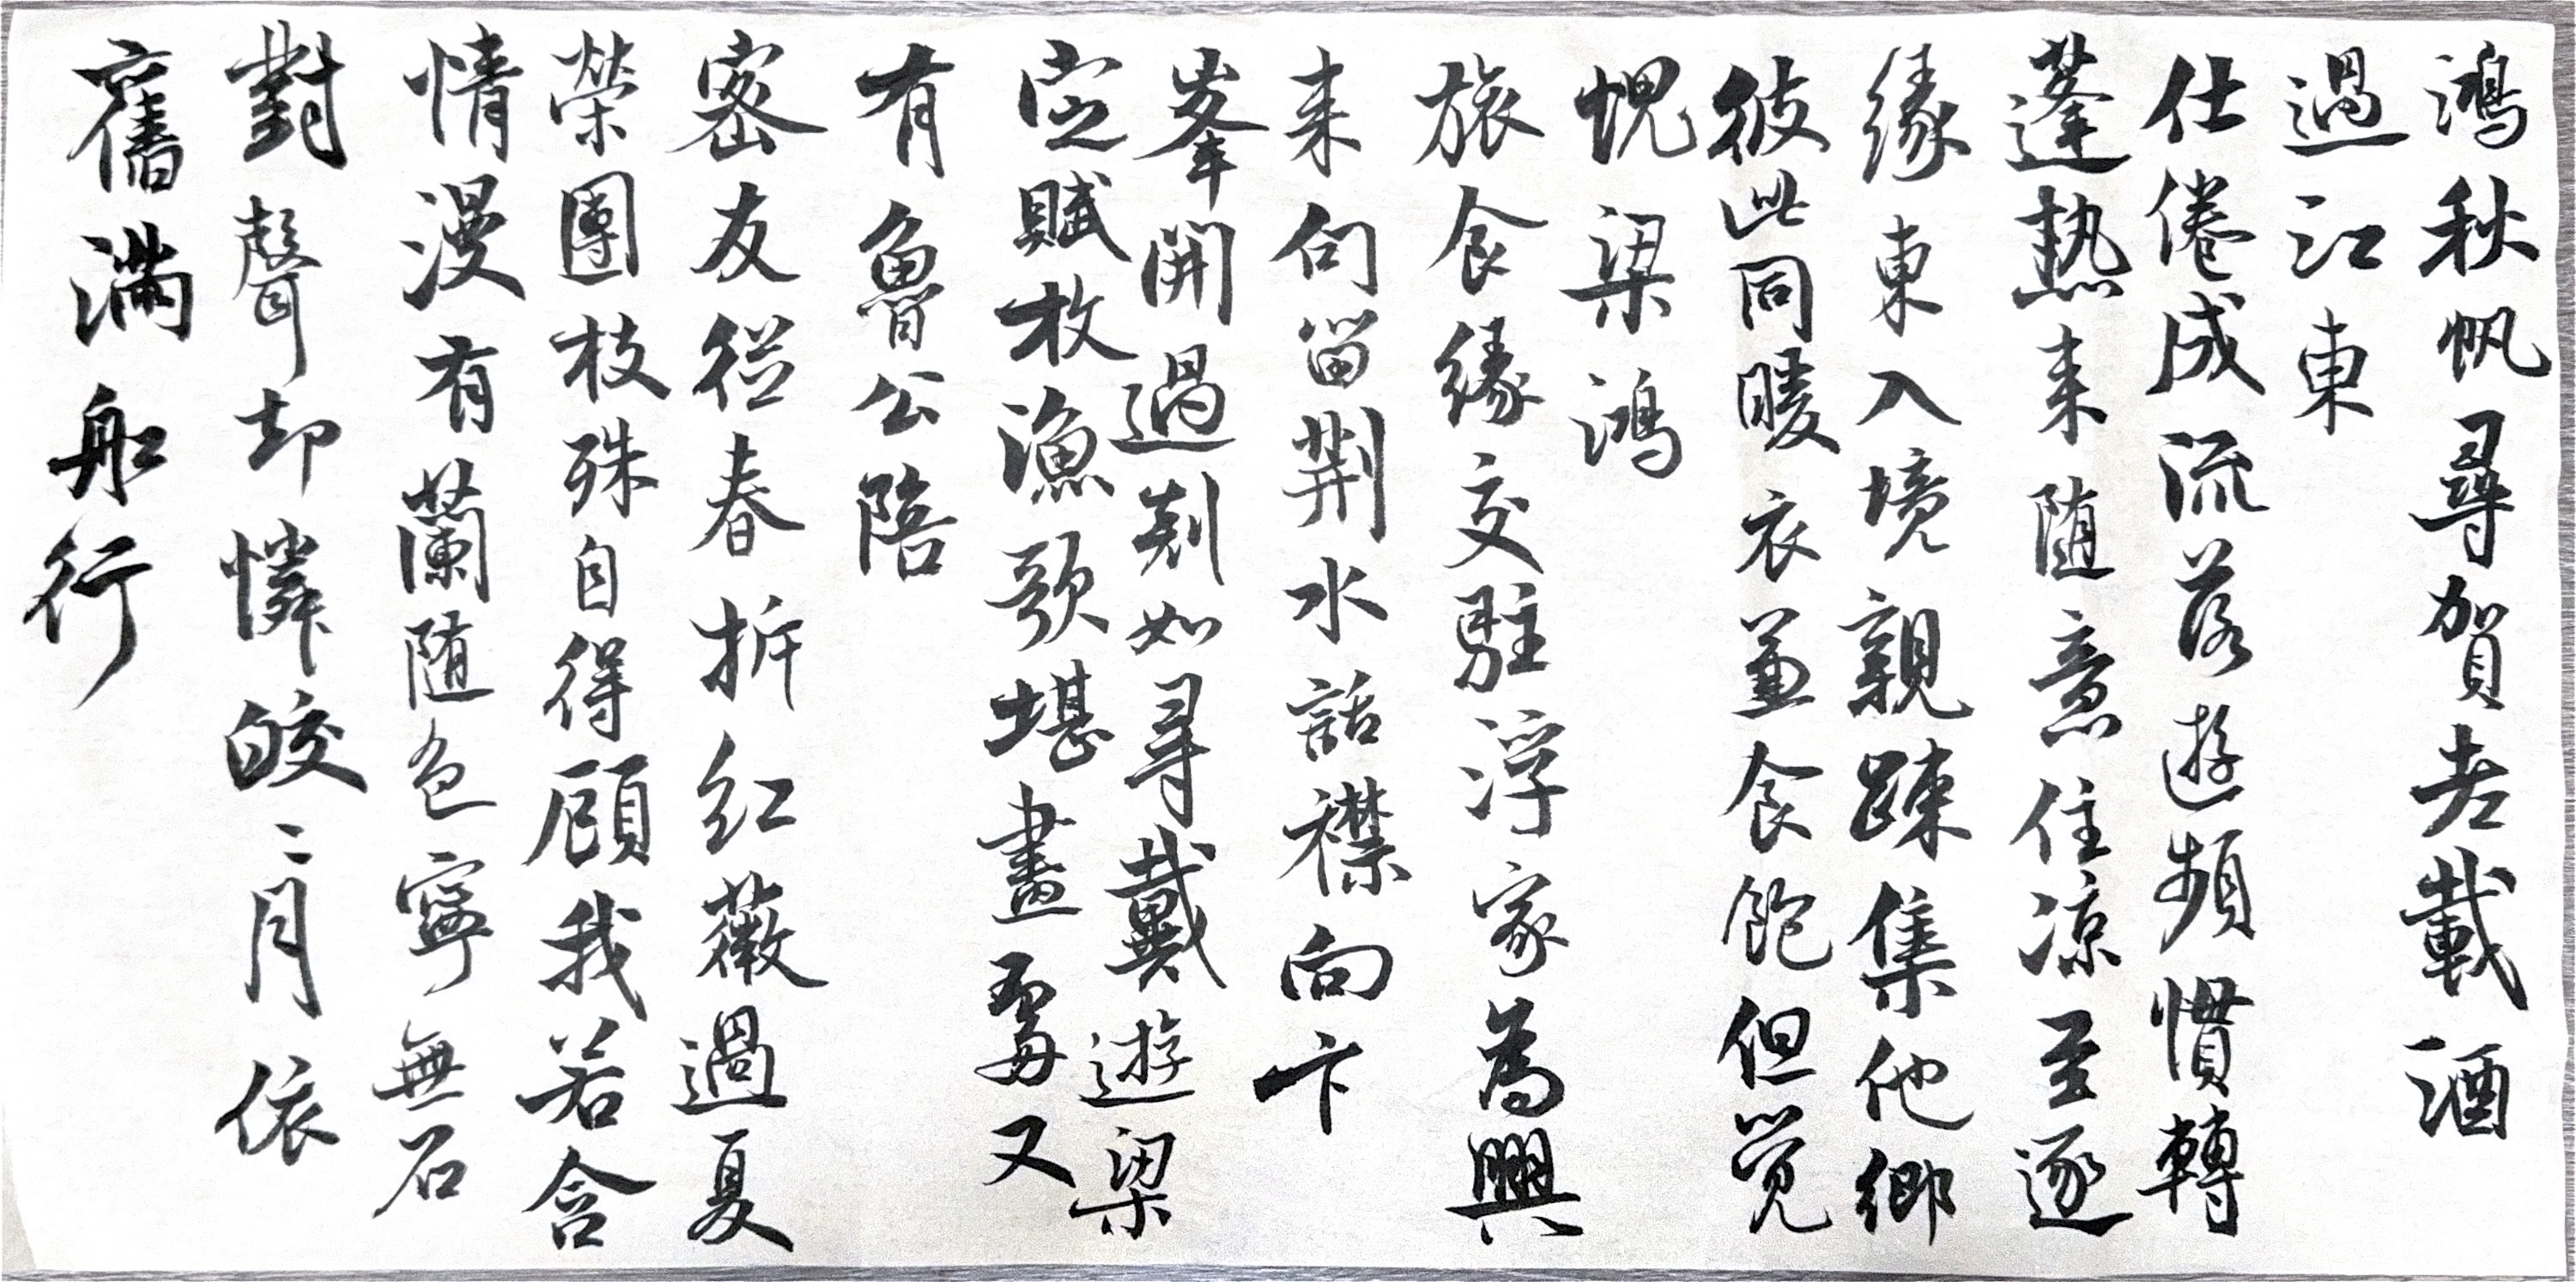 鴻秋帆尋賀老載酒
過江東
仕倦成流落遊頻慣轉
蓬熱来随意住凉至逐
緣東入境親踈集他鄉
彼此同暖衣兼食飽但覺
愧梁鴻
旅食緣交駐浮家為興
来句留荆水話襟向卞
峯開過剡如尋戴遊梁
定賦枚漁歌堪畫處又
有魯公陪
密友從春拆紅薇過夏
榮團枝殊自得顧我若含
情漫有蘭随色寧無石
對聲却憐皎〻月依
舊滿舡行